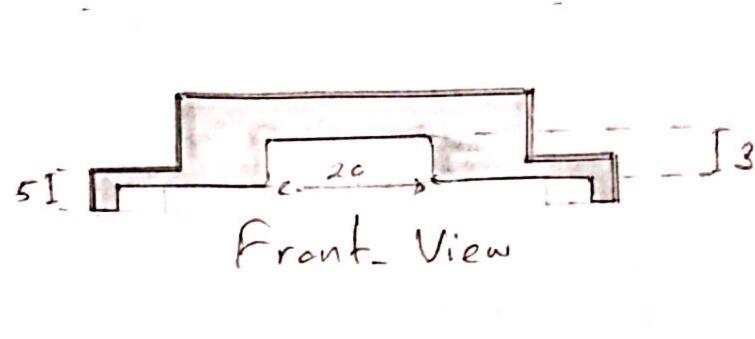 3
5
20
Front View